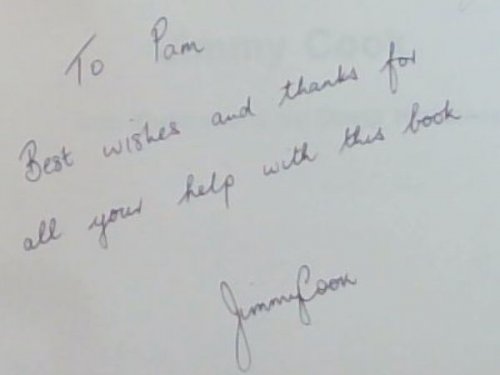 To Pam
Best wishes and thanks for
all your help with this book
Jimmy Cook